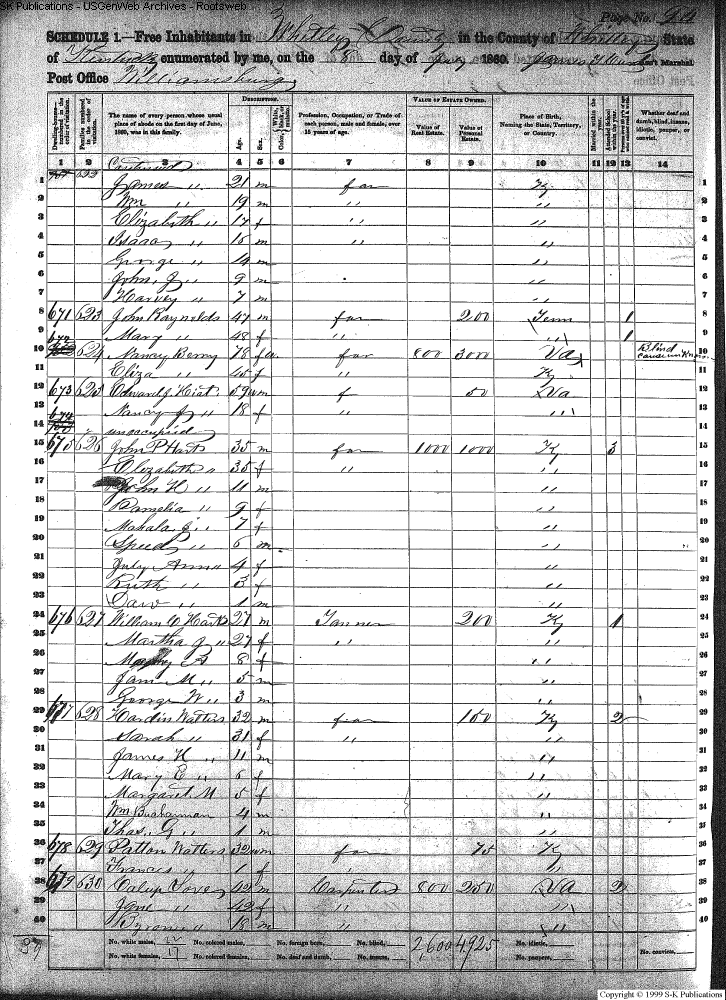 SK Publications - USGenWeb Archives - Rootsweb
Page No.
SCHEDULE 1.—Free Inhabitants in Whitley County in the County of Whitley State
of Kentucky enumerated by me, on the 8 day of 1860. Ass't Marshal
Post Office Williamsburg
Dwelling-houses— numbered in the order of visitation.
Families numbered in the order of visitation.
The name of every person whose usual place of abode on the first day of June, 1860, was in this family.
DESCRIPTION.
Age.
Sex.
Color, White, black, or mulatto.
Profession, Occupation, or Trade of each person, male and female, over 15 years of age.
VALUE OF ESTATE OWNED.
Value of Real Estate.
Value of Personal Estate.
Place of Birth, Naming the State, Territory, or Country.
Married within the year.
Attended School within the year.
Whether deaf and dumb, blind, insane, idiotic, pauper, or convict.
1 2 3 4 5 6 7 8 9 10 11 12 13 14
622 Continued
1 James " 21 m far Ky 1
2 Wm " 19 m " " 2
3 Elizabeth " 17 f " " 3
4 Isaac " 15 m " " 4
5 George " 14 m " 5
6 John J " 9 m " 6
7 Harvey " 7 m " 7
8 671 623 John Raynolds 47 m far 200 Tenn 1 8
9 Mary " 48 f " " 1 9
10 624 Nancy Berry 78 f far 800 3000 Va Blind 10
11 Eliza " 45 f " Ky 11
12 673 625 Edward J. Hiat 59 m f 50 Va 12
13 Nancy J " 18 f " " 13
14 674 unoccupied 14
15 675 626 John P Hart 35 m far 1000 1000 Ky 3 15
16 Elizabeth " 35 f " " 16
17 John H " 11 m " 17
18 Pamelia " 9 f " 18
19 Mahala J " 7 f " 19
20 Speed " 6 m " 20
21 July Anna " 4 f " 21
22 Ruth " 3 f " 22
23 " 1 m " 23
24 676 627 William O Hart 27 m Tanner 200 Ky 1 24
25 Martha J " 27 f " " 25
26 8 f " 26
27 M " 5 m " 27
28 George W " 3 m " 28
29 677 628 Hardin Watters 32 m far 150 Ky 2 29
30 Sarah " 31 f " " 30
31 James H " 11 m " 31
32 Mary E " 6 f " 32
33 Margaret M 5 f " 33
34 Wm Buchannan 4 m " 34
35 Thos. G " 1 m " 35
36 678 629 Patton Watters 32 m far 75 Ky 36
37 Frances " 1 f " 37
38 679 630 Calup 42 m Carpenter 800 250 Va 2 38
39 Jane " 42 f " " 39
40 " 18 m " " 40
No. white males, No. colored males, No. foreign born, No. blind, 2,600 4925 No. idiotic,
No. white females, 17 No. colored females, No. deaf and dumb, No. insane, No. paupers, No. convicts,
Copyright © 1999 S-K Publications